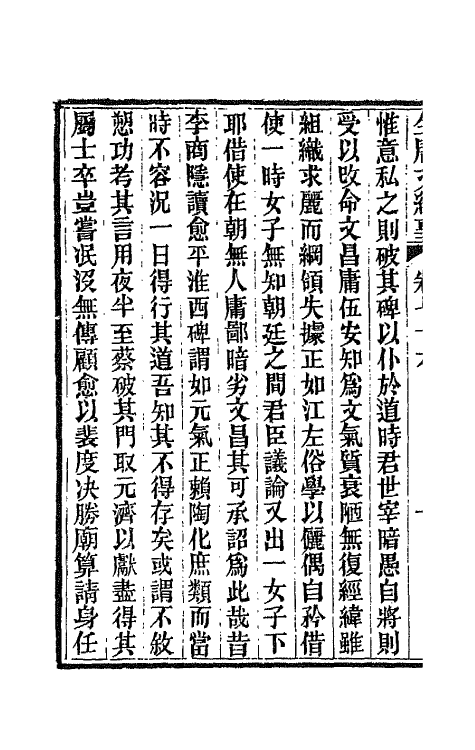 惟意私之則破其碑以仆於道時君世宰暗愚自將則
受以改命文昌庸伍安知爲文氣質衰陋無復經緯雖
組織求麗而綱領失據正如江左俗學以儷偶自矜借
使一時女子無知朝廷之間君臣議論又出一女子下
耶借使在朝無人庸鄙暗劣文昌其可承詔爲此哉昔
李商隱讀愈平淮西碑謂如元氣正賴陶化庶類而當
時不容況一日得行其道吾知其不得存矣或謂不敘
愬功考其言用夜半至蔡破其門取元濟以獻盡得其
屬士卒豈嘗泯沒無傳顧愈以裴度决勝廟算請身任